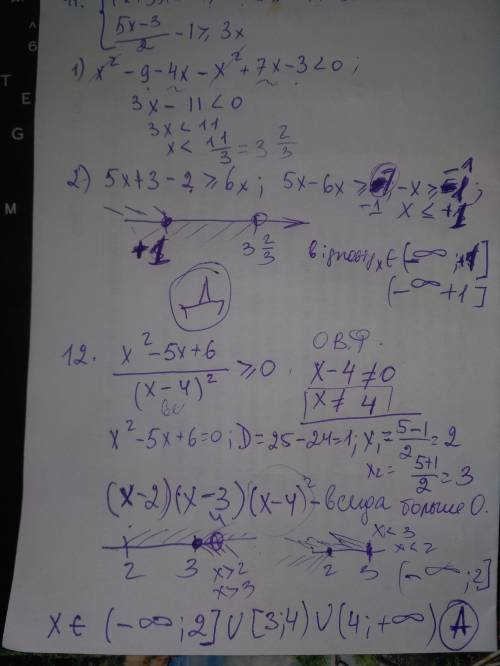 5x-3/2 -1≥ 3x
1) x² -9-4x-x²+7x-3<0;
3x-11<0
3x<11
x< 11/3 = 3 2/3
2) 5x+3-2≥6x; 5x-6x≥-1; -x≥-1;
-1 x≤+1
+1 3 2/3
відповідь x∈(-∞;+1]
(-∞+1]
Д
12. x²-5x+6/(x-4)² ≥0. О.В.Ф.
x-4≠0
x≠4
x²-5x+6=0; D=25-24=1; x₁=5-1/2=2
x₂=5+1/2=3
(x-2)(x-3)(x-4)²-всегда больше 0.
4
2 3 x>2 x>3
2 3 x<3 x<2
(-∞;2]
x∈(-∞;2]∪[3;4)∪(4;+∞) А